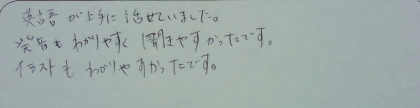 英語が上手に話せていました。
発音もわかりやすく聞きやすかったです。
イラストもわかりやすかったです。